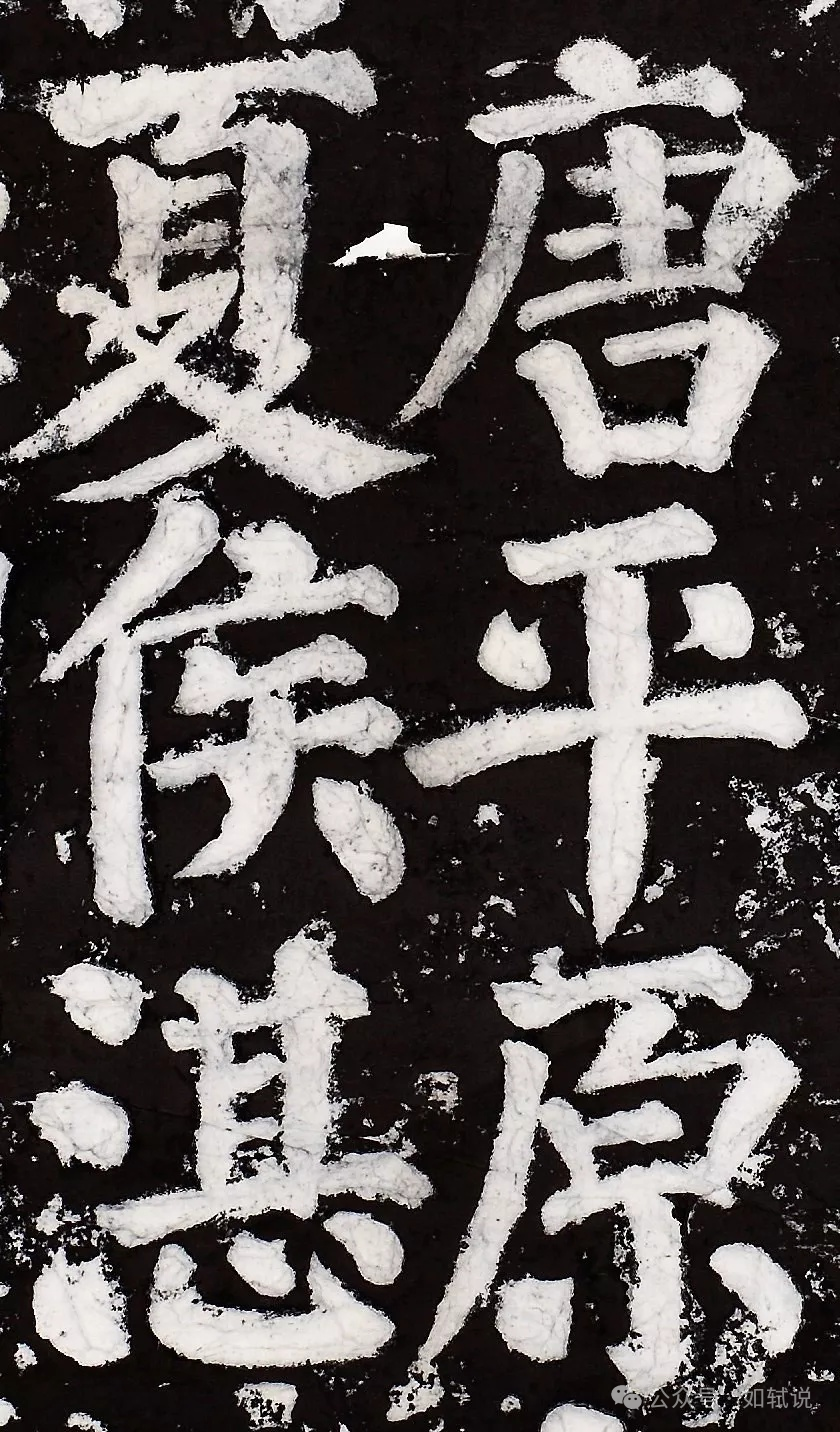 唐平原
夏侯湛
公众号·如轼说